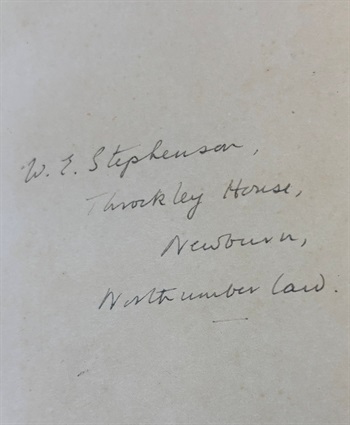 W. E. Stephenson,
Throckley House,
Newburn,
Northumberland.